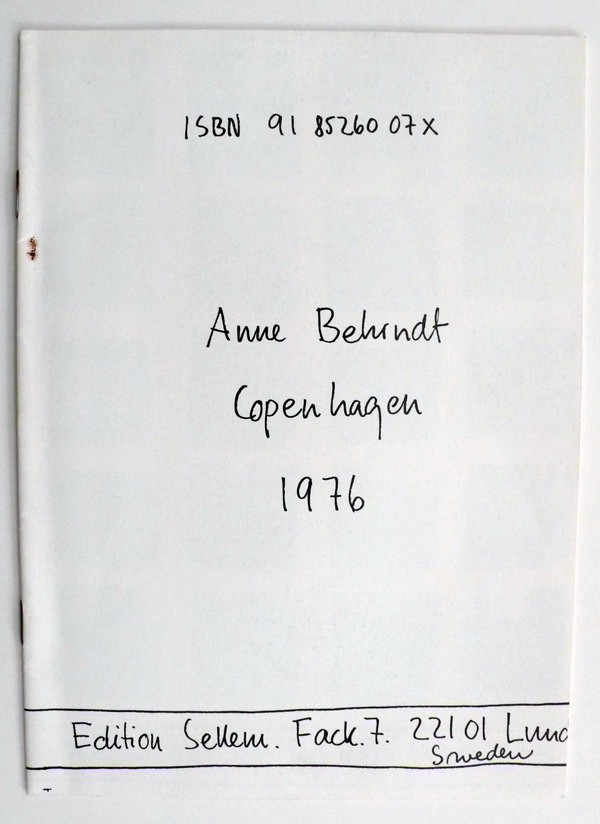 ISBN 91 85260 07X
Anne Behrndt
Copenhagen
1976
Edition Sellem. Fack. 7. 22101 Lund
Sweden